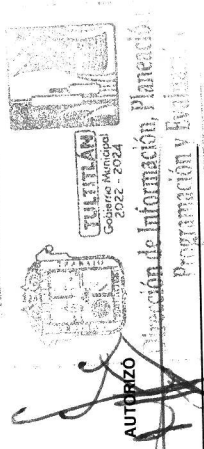 TULTITLÁN
Gobierno Municipal
2022 - 2024
Dirección de Información, Planeació
Programación y Evalua
AUTORIZÓ